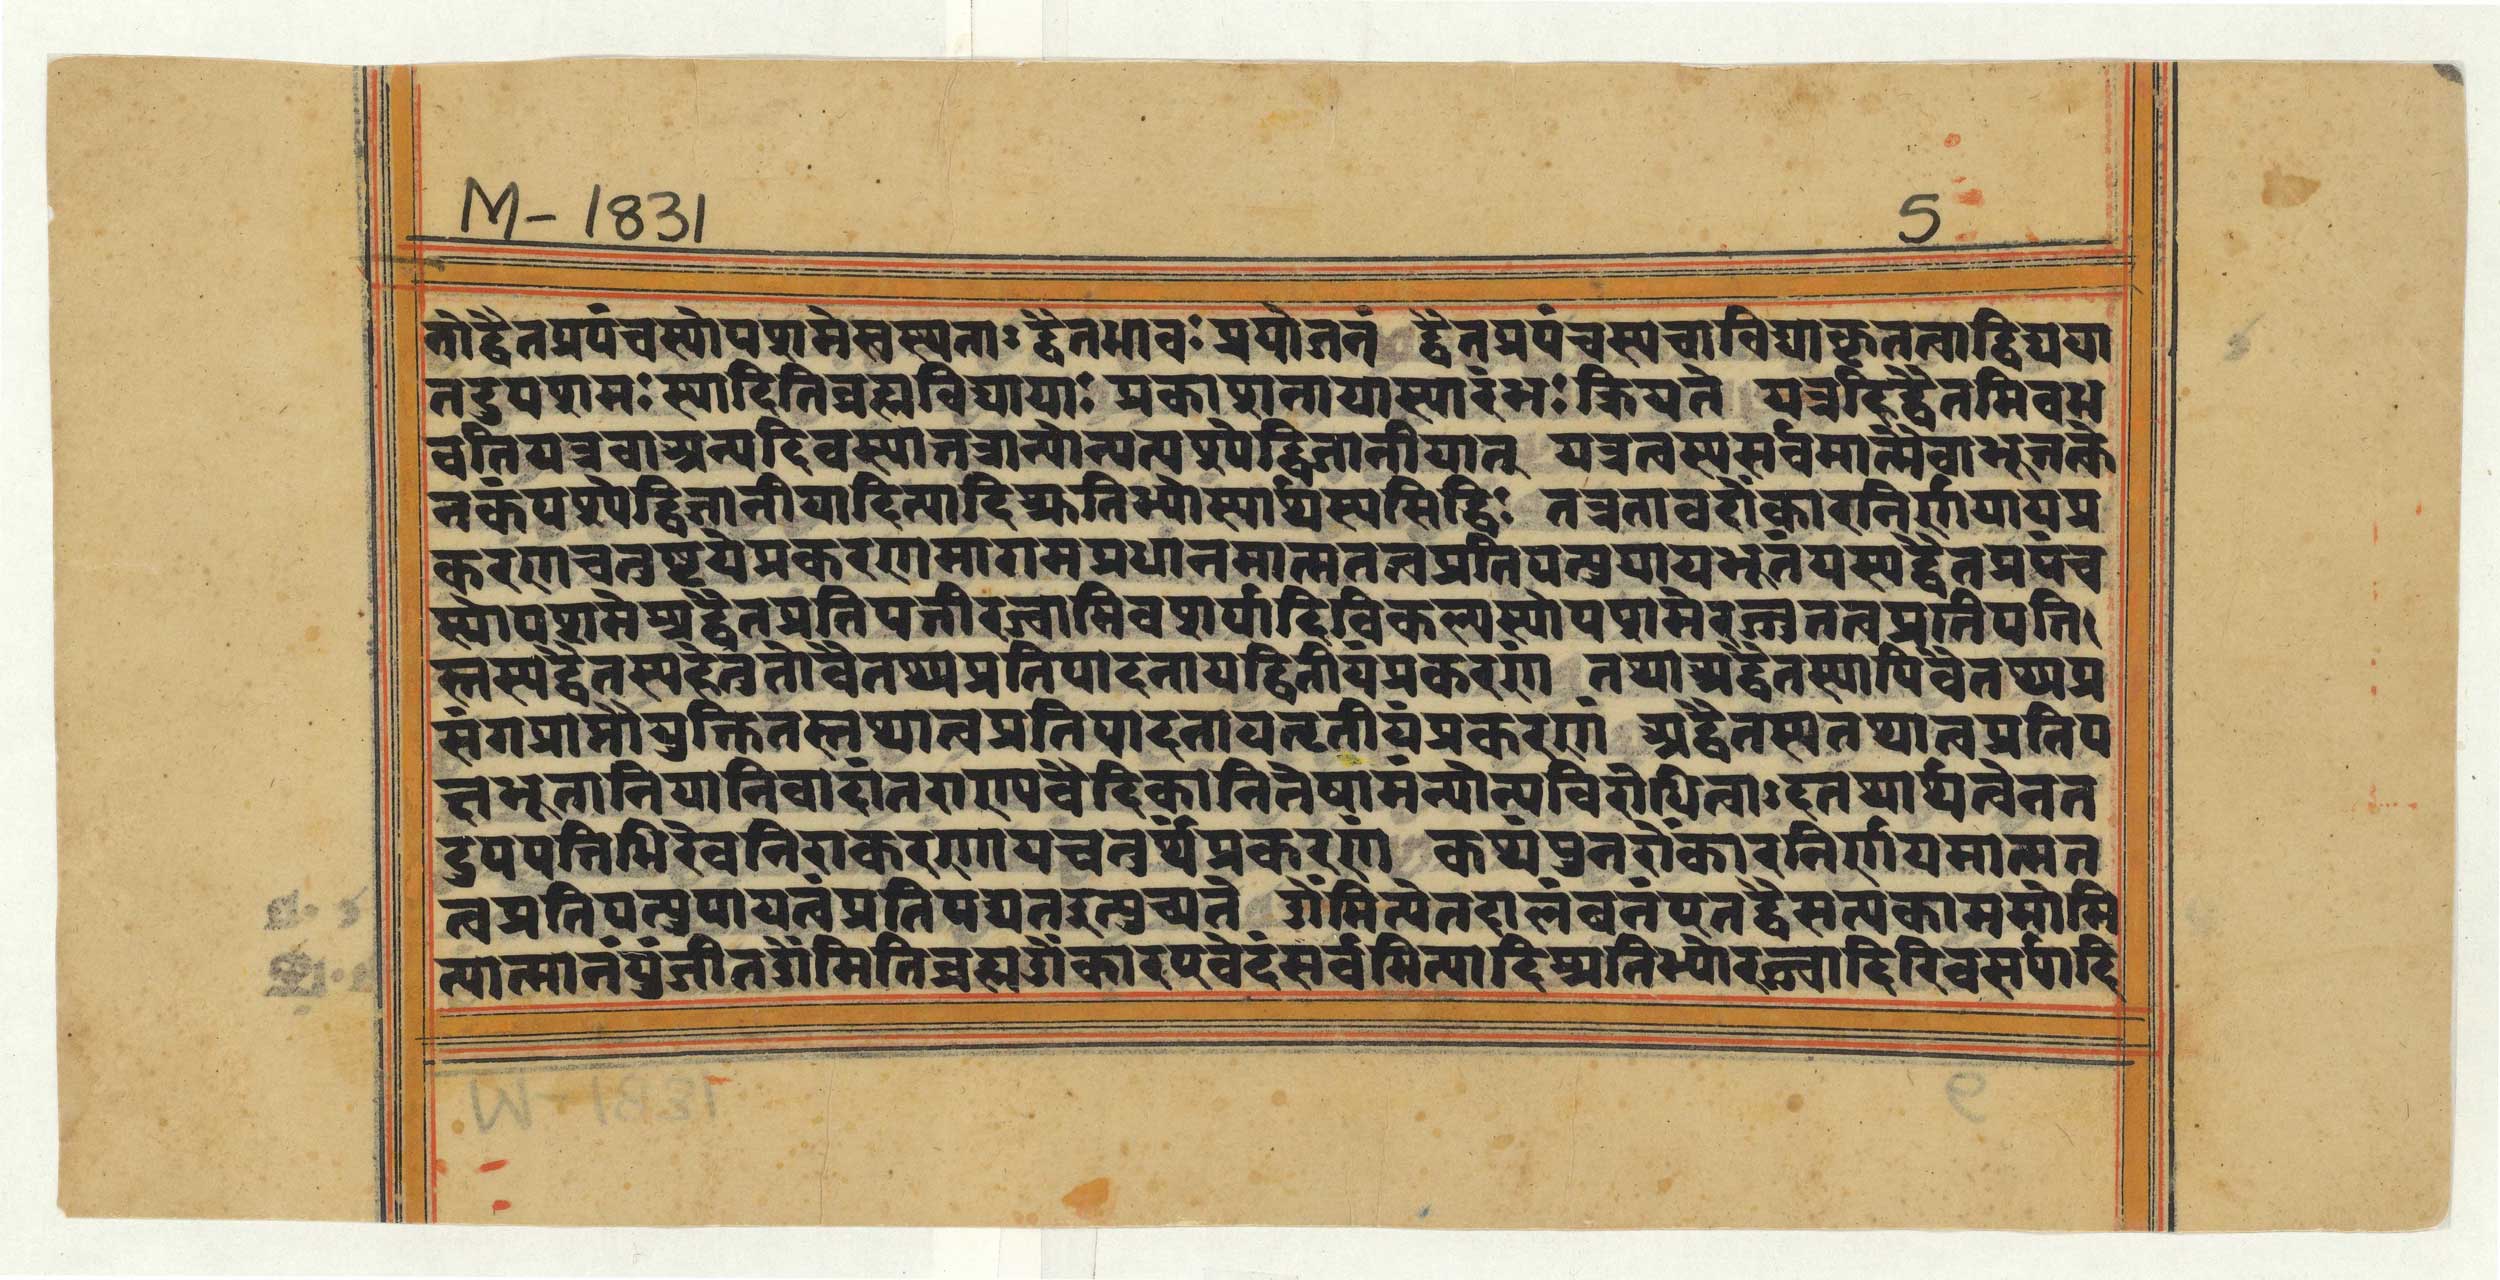 M-1831
5
तोद्वैतप्रपंचस्योपशमेस्वस्थताऽद्वैतभावः प्रयोजनं द्वैतप्रपंचस्यचाविद्याकृतत्वाद्विद्यया
तदुपशमः स्यादितिब्रह्मविद्यायाः प्रकाशनायास्यारंभः क्रियते यत्रहिद्वैतमिवभ
वतियत्रवाअन्यदिवस्यात्तत्रान्योन्यत्पश्येद्विजानीयात् यत्रत्वस्यसर्वमात्मैवाभूत्तत्के
नकंपश्येद्विजानीयादित्यादिश्रुतिभ्योस्यार्थस्यसिद्धिः तत्रतावदोंकारनिर्णयायप्र
करणचतुष्टयेप्रकरणमागमप्रधानमात्मतत्वप्रतिपत्युपायभूतंयस्यद्वैतप्रपंच
स्योपशमेअद्वैतप्रतिपत्तीरज्वामिवशर्पादिविकल्पस्योपशमेरज्जुतत्वप्रतिपत्ति
स्तस्यद्वैतस्यहेतुतोवैतथ्यप्रतिपादनायद्वितीयंप्रकरणं तथाअद्वैतस्यापिवैतथ्यप्र
संगप्राप्तौयुक्तितस्तथात्वप्रतिपादनायतृतीयंप्रकरणं अद्वैतस्यतथात्वप्रतिप
क्षभूतानियानिवादांतराण्यवैदिकानितेषामंन्योन्यविरोधित्वाऽदतथार्थत्वेनत
दुपपत्तिभिरेवनिराकरणायचतुर्थंप्रकरणं कथंपुनरोंकारनिर्णयमात्मत
त्वप्रतिपत्युपायत्वंप्रतिपद्यतइत्युच्यते ओंमित्येतदालंबनंएतद्वैसत्यकाममोमि
त्यात्मानंयुंजीतओंमितिब्रह्मओंकारएवेदंसर्वमित्यादिश्रुतिभ्योरज्वादिरिवसर्पादि